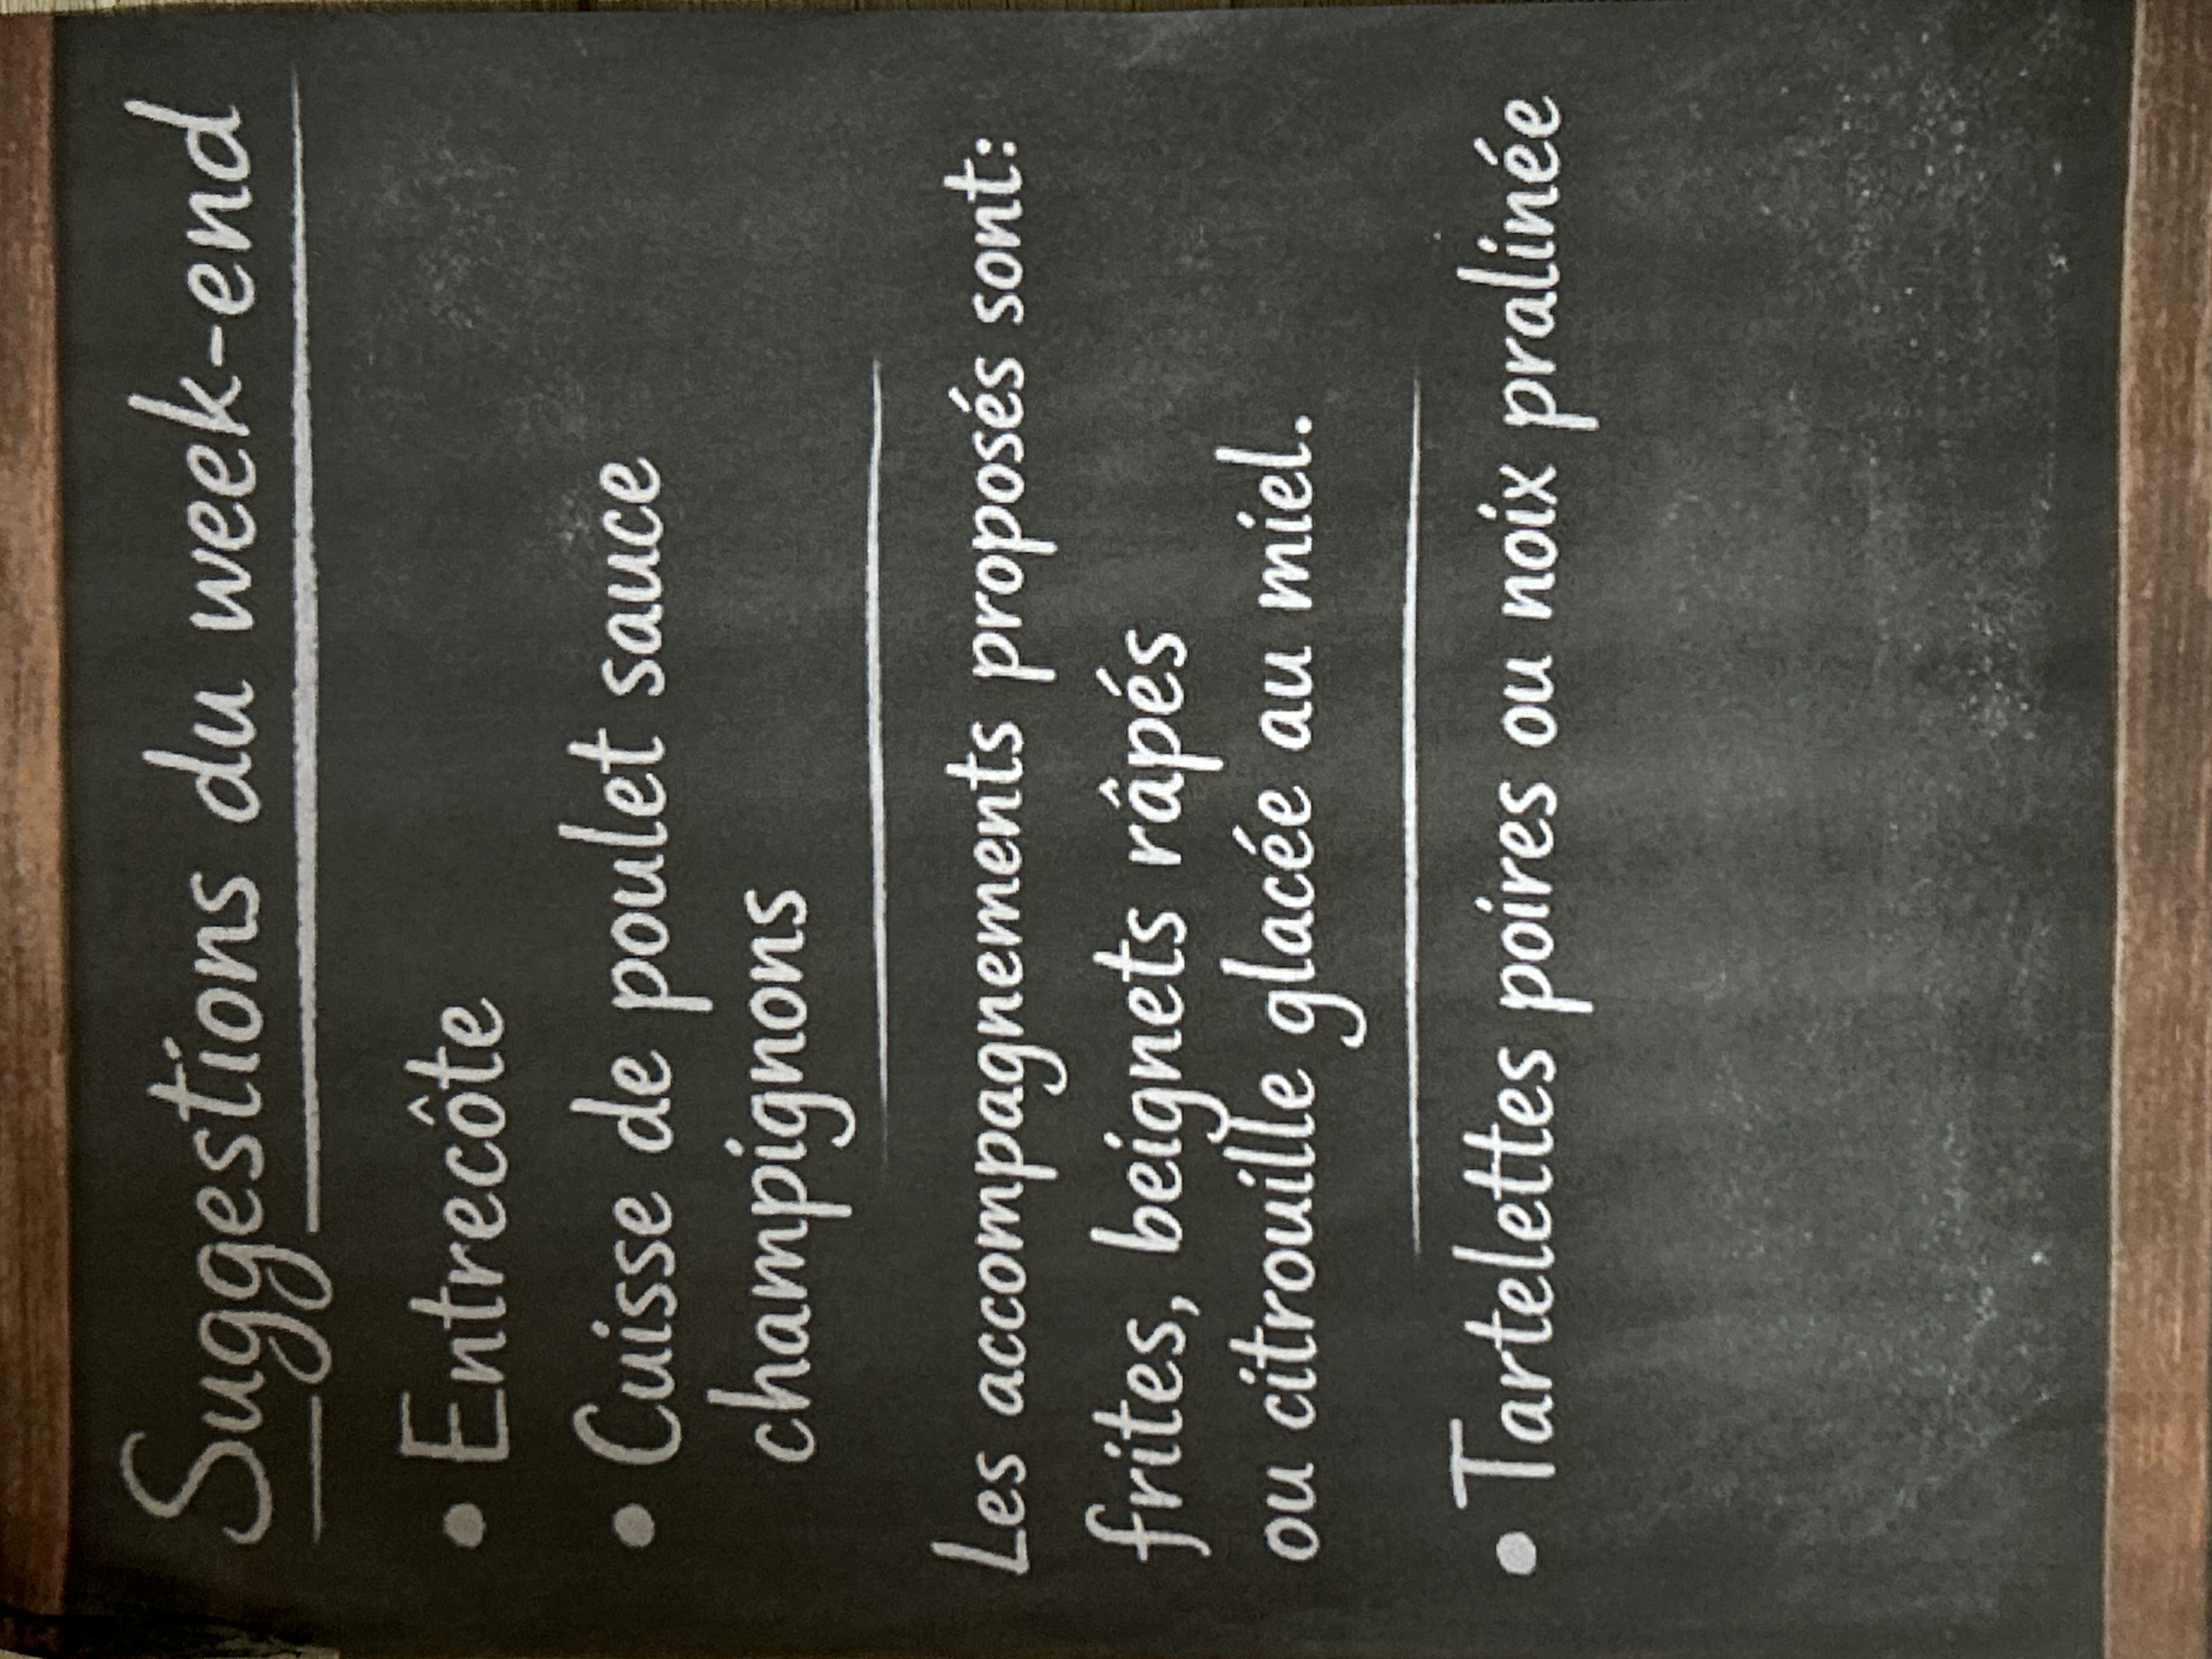 Suggestions du week-end
• Entrecôte
• Cuisse de poulet sauce
champignons
Les accompagnements proposés sont:
frites, beignets râpés
ou citrouille glacée au miel.
• Tartelettes poires ou noix pralinée